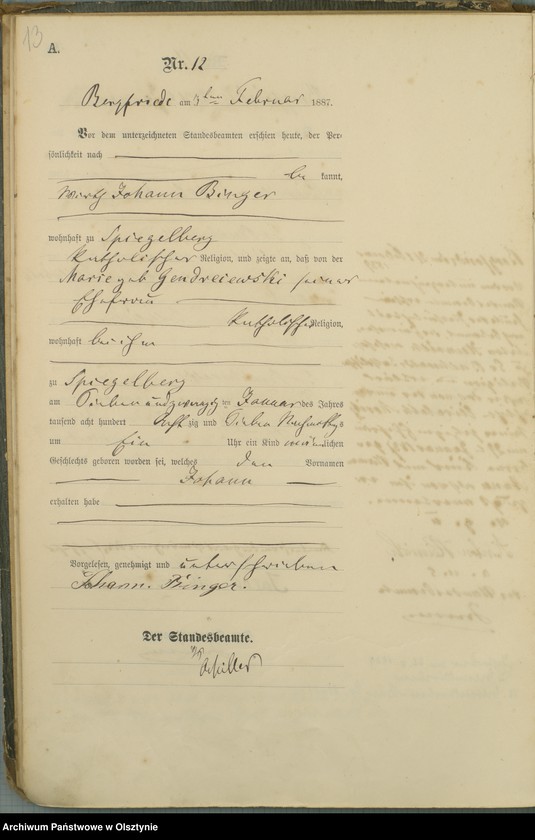 13
A.
Nr. 12
Bergfriede am 3ten Februar 1887.
Vor dem unterzeichneten Standesbeamten erschien heute, der Per-
sönlichkeit nach
be kannt,
Wirth Johann Binger
wohnhaft zu Spiegelberg
katholischer Religion, und zeigte an, daß von der
Marie geb Gendreiewski seiner
Ehefrau
katholischer Religion,
wohnhaft bei ihm
zu Spiegelberg
am Sieben und zwanzigsten Januar des Jahres
tausend acht hundert acht zig und Sieben Nachmittags
um Ein Uhr ein Kind männlichen
Geschlechts geboren worden sei, welches den Vornamen
Johann
erhalten habe
Vorgelesen, genehmigt und unterschrieben
Johann Binger.
Der Standesbeamte.
Archiwum Państwowe w Olsztynie